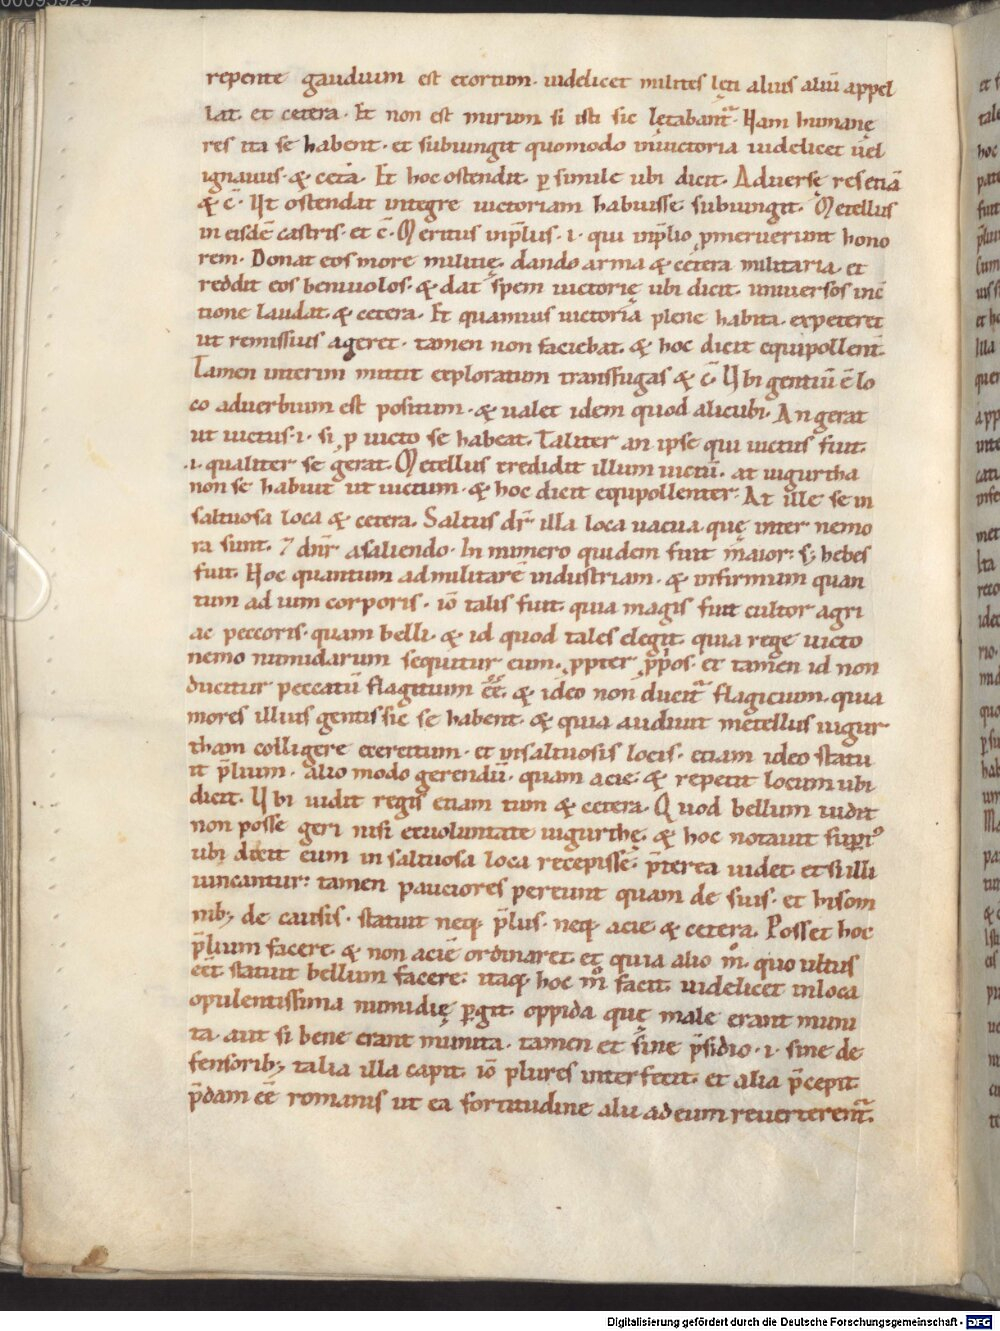 repente gaudium est exortum. uidelicet milites lęti alius aliū appel
lat. et cetera. Et non est mirum si isti sic lętabant̃. Nam humanę
res ita se habent. et subiungit quomodo inuictoria uidelicet uel
ignauus. & ceta. Et hoc ostendit. p simile ubi dicit. Aduersę res etiā
& c̄. Ut ostendat integre uictoriam habuisse. subiungit. Metellus
in eisdē castris. et c̄. Meritus inp̄lus. i. qui inp̄lio pmeruerunt hono
rem. Donat eos more militię. dando arma & cetera militaria. et
reddit eos beniuolos. & dat spem uictorię ubi dicit. uniuersos inc̄
tione laudat. & cetera. Et quamuis uictoria plene habita. expeteret
ut remissius ageret. tamen non faciebat. & hoc dicit equipollent̄.
Tamen interim mittit exploratum transfugas & c̄. Ubi gentiū ē lo
co aduerbium est positum. & ualet idem quod alicubi. An gerat
ut uictus. i. si p uicto se habeat. Taliter an ipse qui uictus fuit.
.i. qualiter se gerat. Metellus credidit illum uictū. at iugurtha
non se habuit ut uictum. & hoc dicit equipollenter. At ille se in
saltuosa loca & cetera. Saltus dr̄ illa loca uacua. quę inter nemo
ra sunt. 7 dnr̄ a saliendo. In numero quidem fuit maior: s; hebes
fuit. Hoc quantum ad militarē industriam. & infirmum quan
tum ad uim corporis. iō talis fuit. quia magis fuit cultor agri
ac peccoris. quam belli. & id quod tales elegit. quia rege uicto
nemo numidarum sequitur eum. ppter p̄pos. et tamen id non
ducitur peccatū flagitium ēē. & ideo non ducit̃ flagicium. quia
mores illius gentis sic se habent. & quia audiuit metellus iugur
tham colligere exercitum. et insaltuosis locis. etiam ideo statu
it p̄lium. alio modo gerendū. quam acie. & repetit locum ubi
dicit. Ubi uidit regis etiam tum & cetera. Quod bellum uidit
non posse geri nisi exuoluntate iugurthę. & hoc notauit supi9
ubi dixit eum in saltuosa loca recepisse. p̄terea uidet. et si illi
uincantur: tamen pauciores pereunt quam de suis. et his om
nib; de causis. statuit neq; p̄lus. neq; acie & cetera. Posset hoc
p̄lium facere. & non aciē ordinaret. et quia alio m̊. quo ultus
eēt statuit bellum facere. itaq; hoc m̊ facit. uidelicet inloca
opulentissima numidię pgit. oppida quę male erant muni
ta. aut si bene erant munita. tamen et sine p̄sidio. i. sine de
fensorib; talia illa capit. iō plures interfecit. et alia p̄cepit
p̄dam eē romanis ut ea fortitudine alii ad eum reuerterent̃.